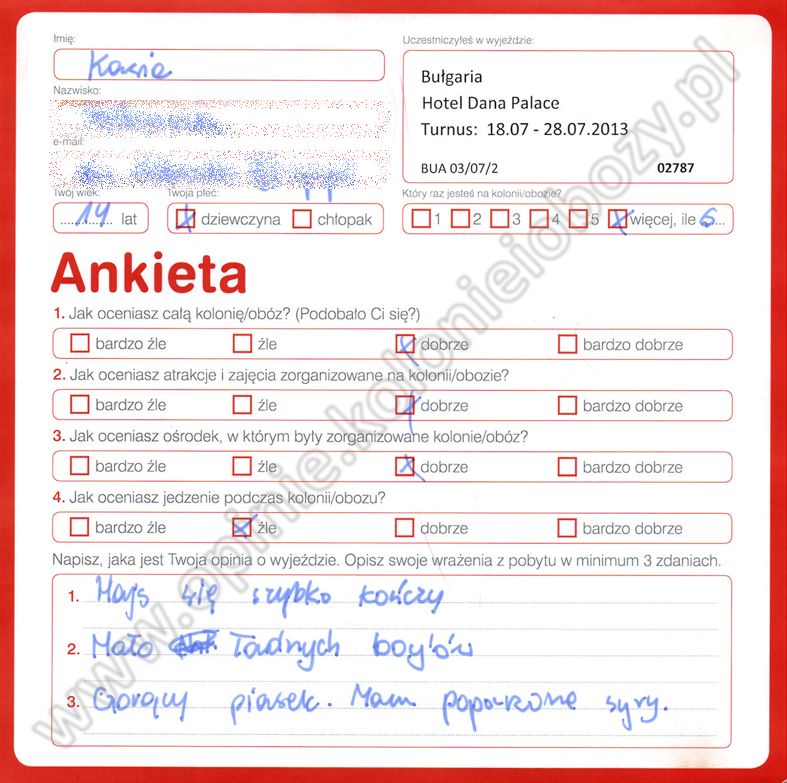 Imię:
Kasia
Uczestniczyłeś w wyjeździe:
Bułgaria
Hotel Dana Palace
Turnus: 18.07 - 28.07.2013
BUA 03/07/2
02787
Nazwisko:
e-mail:
Twój wiek:
14 lat
Twoja płeć:
dziewczyna chłopak
Który raz jesteś na kolonii/obozie?
1 2 3 4 5 więcej, ile 6
Ankieta
1. Jak oceniasz całą kolonię/obóz? (Podobało Ci się?)
bardzo źle źle dobrze bardzo dobrze
2. Jak oceniasz atrakcje i zajęcia zorganizowane na kolonii/obozie?
bardzo źle źle dobrze bardzo dobrze
3. Jak oceniasz ośrodek, w którym były zorganizowane kolonie/obóz?
bardzo źle źle dobrze bardzo dobrze
4. Jak oceniasz jedzenie podczas kolonii/obozu?
bardzo źle źle dobrze bardzo dobrze
Napisz, jaka jest Twoja opinia o wyjeździe. Opisz swoje wrażenia z pobytu w minimum 3 zdaniach.
1. Hajs się szybko kończy
2. Mało ładnych boy'ów
3. Gorący piasek. Mam poparzone syry.
www.opinie.kolonieiobozy.pl